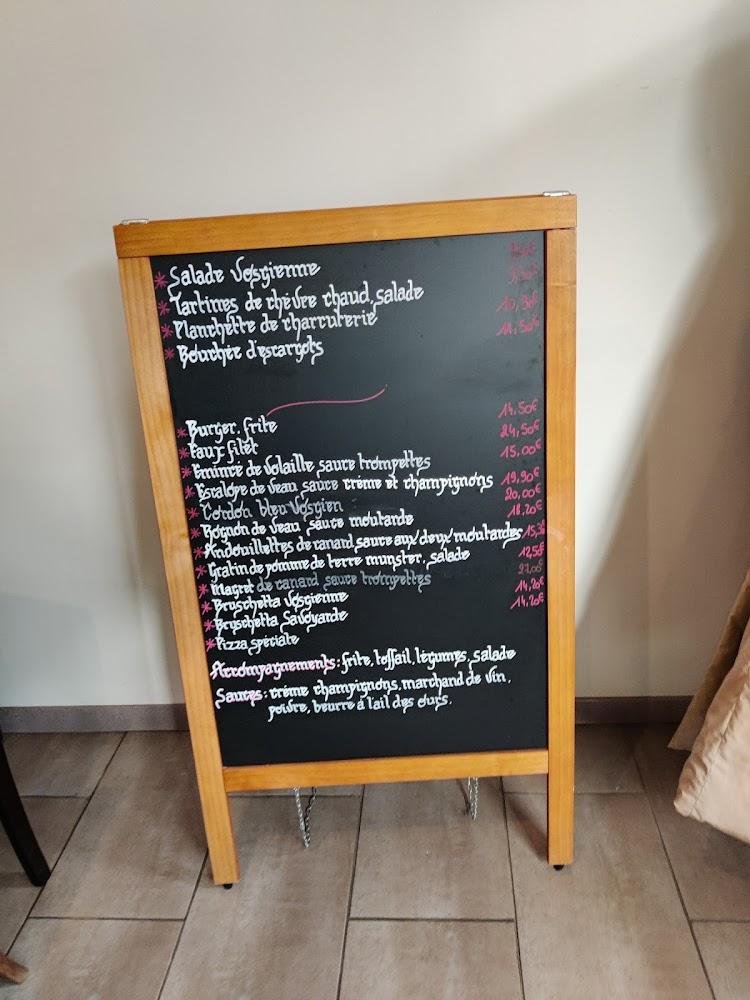 * Salade vosgienne
* Tartines de chèvre chaud, salade
* Planchette de charcuterie 10,90€
* Bouchée d'escargots 11,50€
* Burger, frite 14,50€
* Faux filet 24,50€
* Emincé de volaille, sauce trompettes 15,00€
* Escalope de veau, sauce crème et champignons 19,90€
* Cordon bleu vosgien 20,00€
* Rognon de veau, sauce moutarde 18,20€
* Andouillettes de canard, sauce aux deux moutardes
* Gratin de pomme de terre munster, salade 12,50€
* Magret de canard sauce trompettes
* Bruschetta vosgienne 14,20€
* Bruschetta savoyarde 14,20€
* Pizza spéciale
Accompagnements: frite, toffail, légumes, salade
Sauces: crème champignons, marchand de vin,
poivre, beurre à l'ail des ours.